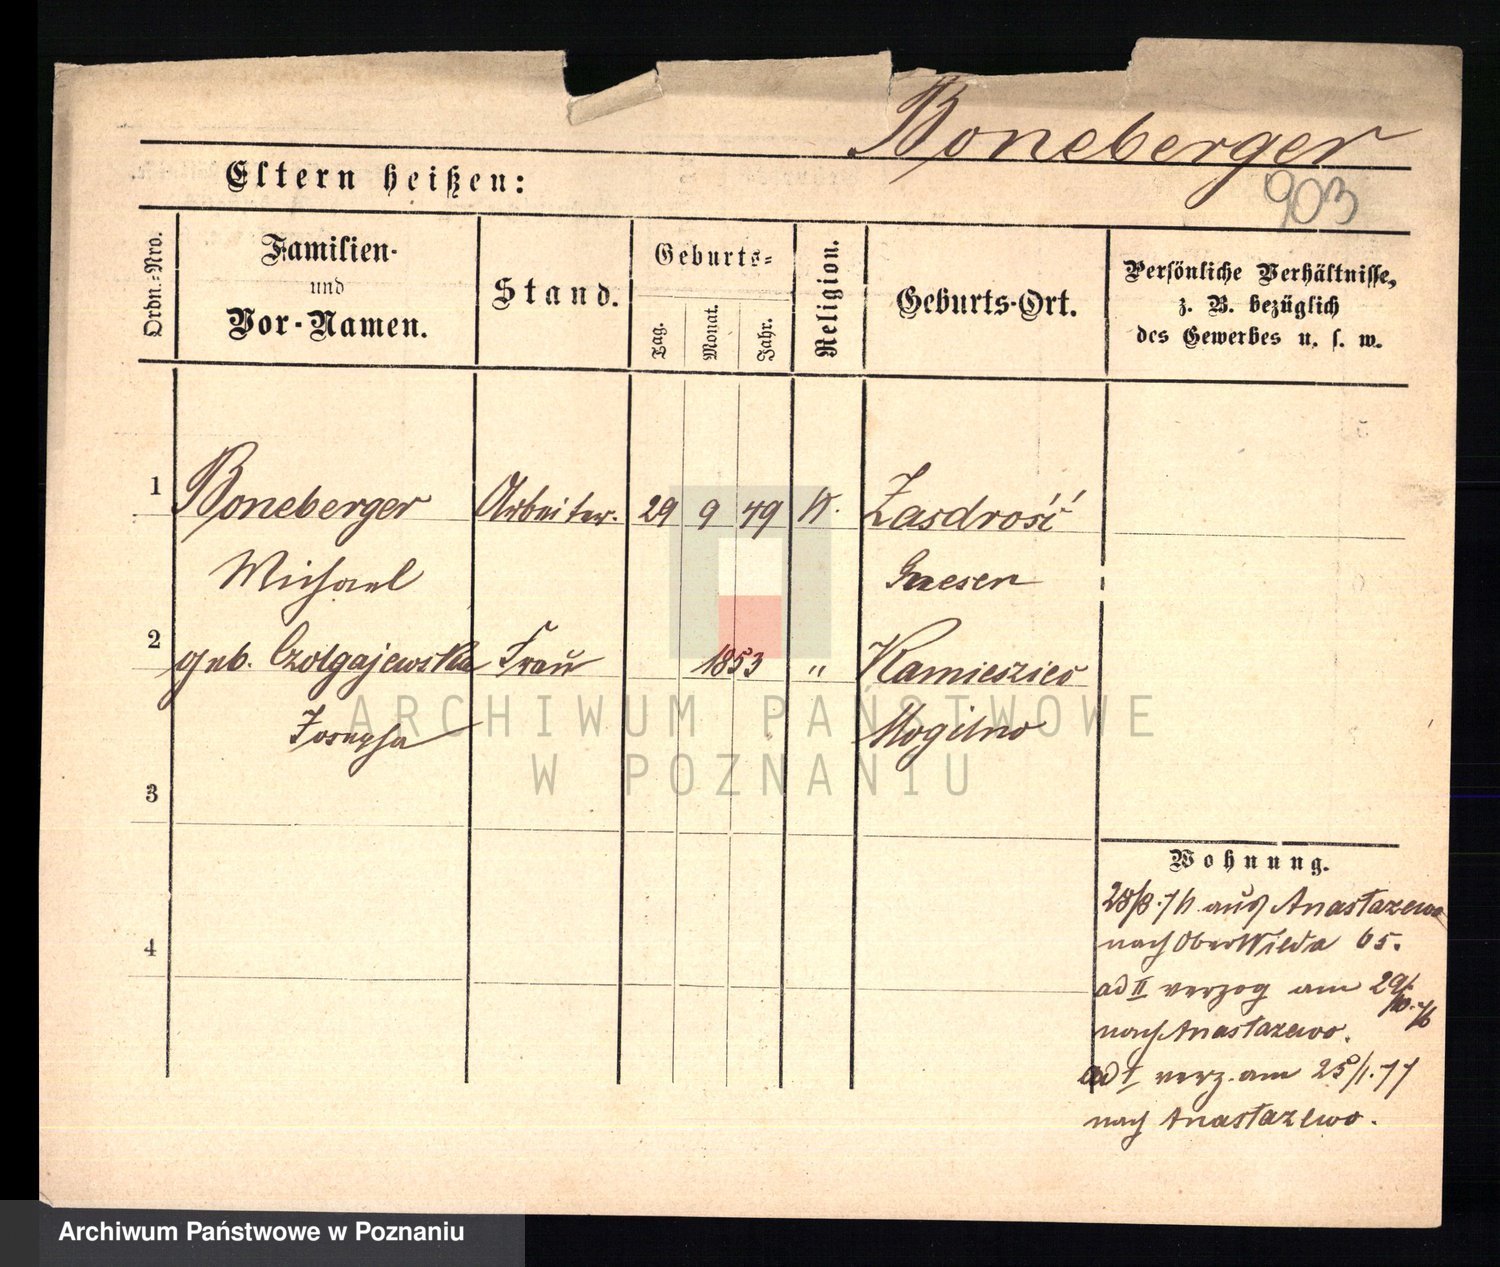 Boneberger
903
Eltern heißen:
Ordn.-Nro.
Familien-
und
Vor-Namen.
Stand.
Geburts-
Tag.
Monat.
Jahr.
Religion.
Geburts-Ort.
Persönliche Verhältnisse,
z. B. bezüglich
des Gewerbes u. s. w.
1 Boneberger Arbeiter. 29 9 49 K. Zasdrość
Michael
2 geb. Czolgajewska Frau 1853 " Kamieszies
Josepha Mogilno
3
4
Wohnung.
28/8.76. aus Anastazewo
nach Ober Wilda 65.
ad II verzog am 29/10.76
nach Anastazewo.
ad I verz. am 25/1.77
nach Anastazewo.
ARCHIWUM PAŃSTWOWE
W POZNANIU
Archiwum Państwowe w Poznaniu